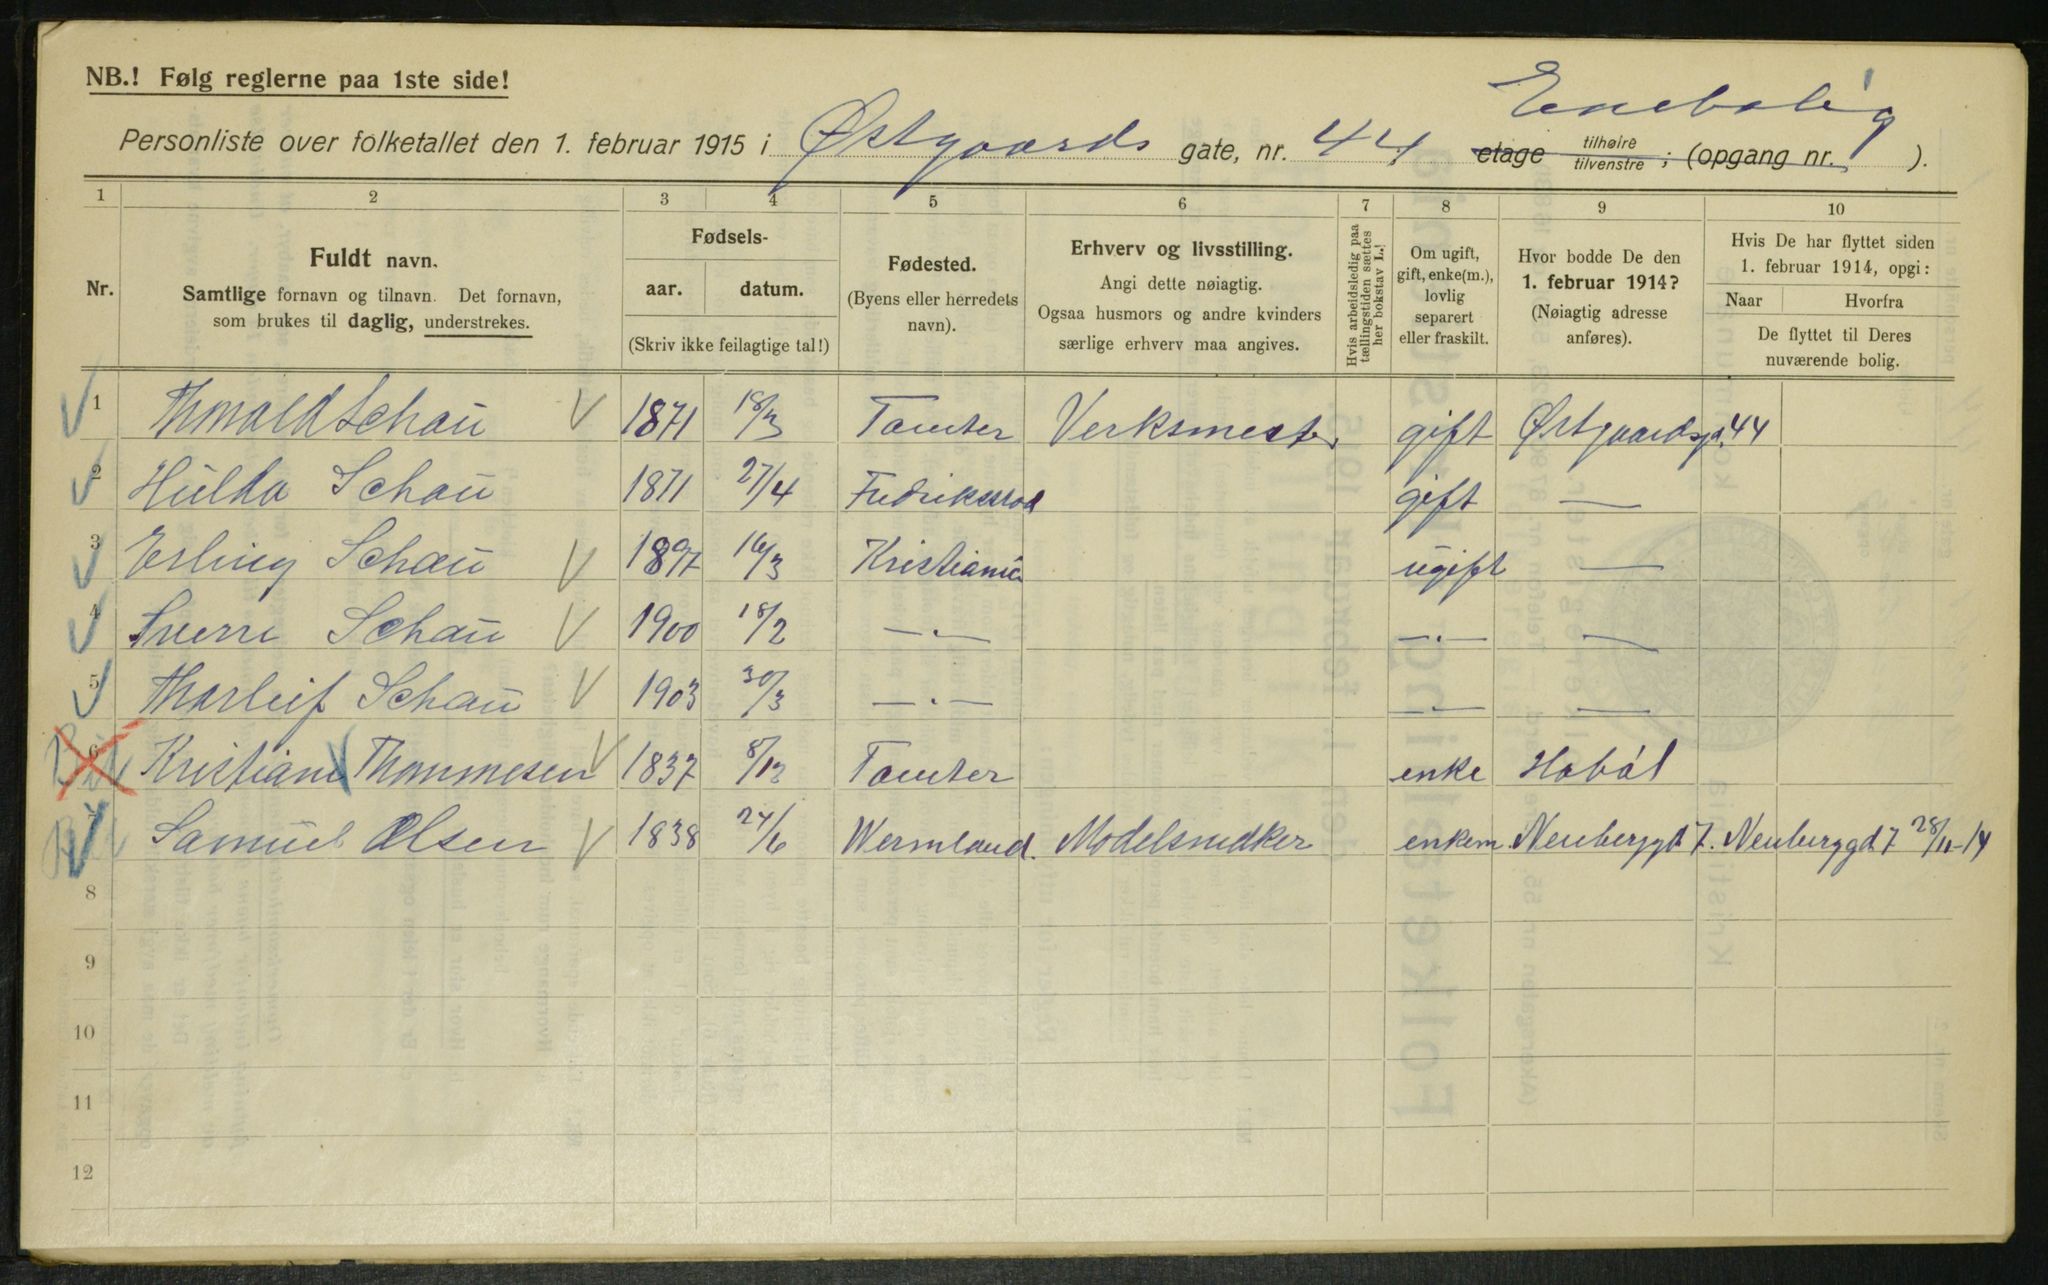 NB.! Følg reglerne paa 1ste side!
Enebolig
Personliste over folketallet den 1. februar 1915 i Østgaards gate, nr. 44 etage tilhøire tilvenstre ; (opgang nr. ).
1 2 3 4 5 6 7 8 9 10
Nr.
Fuldt navn.
Samtlige fornavn og tilnavn. Det fornavn,
som brukes til daglig, understrekes.
Fødsels-
aar. datum.
(Skriv ikke feilagtige tal!)
Fødested.
(Byens eller herredets
navn).
Erhverv og livsstilling.
Angi dette nøiagtig.
Ogsaa husmors og andre kvinders
særlige erhverv maa angives.
Hvis arbeidsledig paa
tællingstiden sættes
her bokstav L.!
Om ugift,
gift, enke(m.),
lovlig
separert
eller fraskilt.
Hvor bodde De den
1. februar 1914?
(Nøiagtig adresse
anføres).
Hvis De har flyttet siden
1. februar 1914, opgi:
Naar Hvorfra
De flyttet til Deres
nuværende bolig.
1 Thorvald Schau 1871 18/3 Tomter Verksmester gift Østgaardsg. 44
2 Hulda Schau 1871 27/4 Fredriksstad gift —
3 Erling Schau 1897 16/3 Kristiania ugift —
4 Sverre Schau 1900 18/2 —"— —"— —
5 Thorleif Schau 1903 30/3 —"— —"— —
6 Kristiane Thommesen 1837 8/12 Tomter enke Hobøl
7 Samuel Olsen 1838 24/6 Wermland. Modelsnedker enkem. Neuberggt 7. Neuberggd. 7 28/11-14
8
9
10
11
12